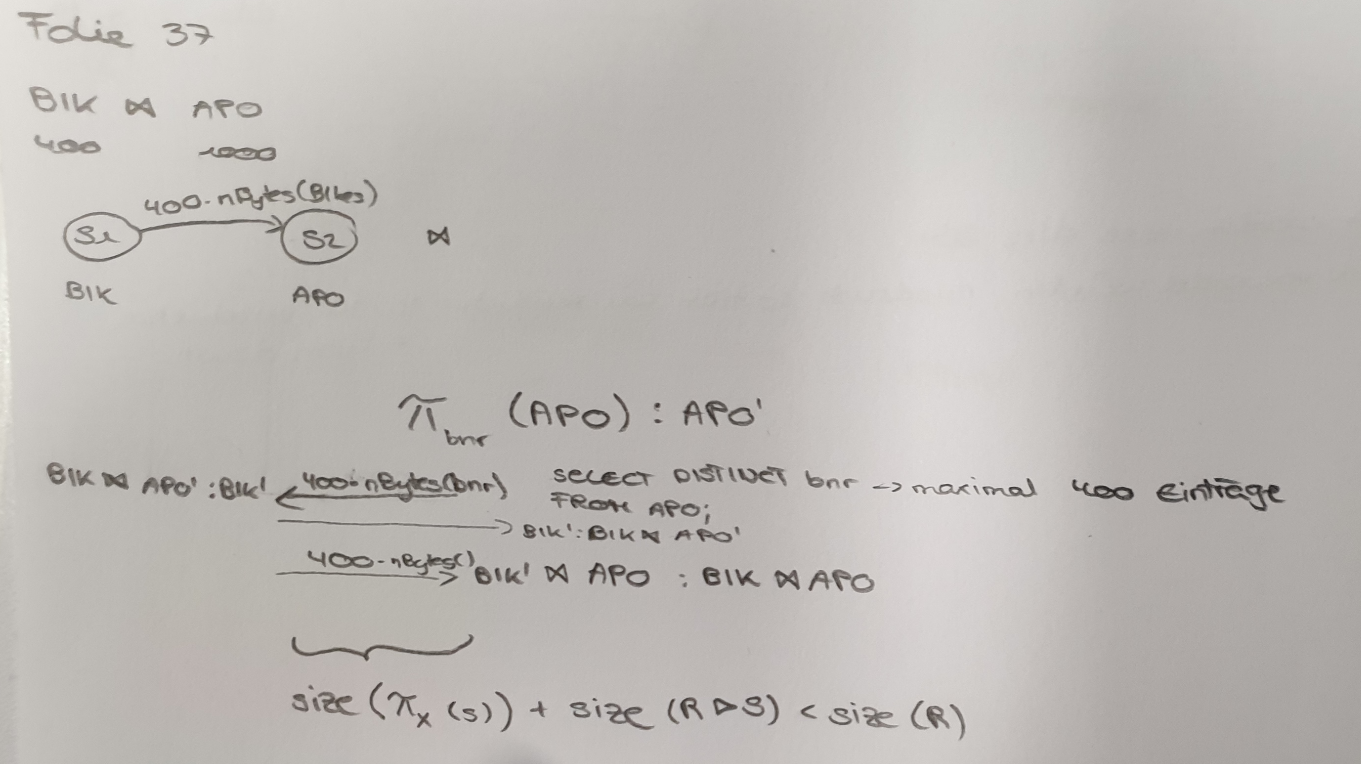 Folie 37
BIK ⋈ APO
400 1000
400·nBytes(Bikes)
S1 S2 ⋈
BIK APO
π bnr (APO) : APO'
BIK ⋈ APO' : BIK' 400·nBytes(bnr) SELECT DISTINCT bnr -> maximal 400 Einträge
FROM APO;
BIK' : BIK ⋈ APO'
400·nBytes() BIK' ⋈ APO : BIK ⋈ APO
size (π x (S)) + size (R ⊳ S) < size (R)